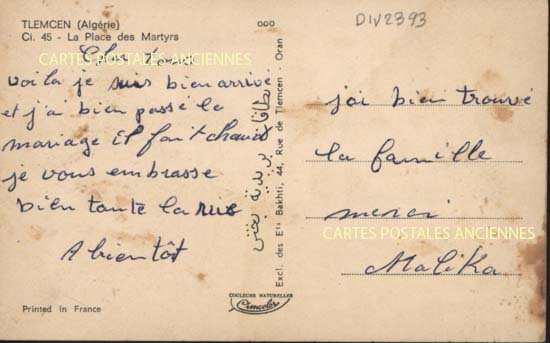 TLEMCEN (Algérie)
Ci. 45 - La Place des Martyrs
CARTES POSTALES ANCIENNES
Cher tous
voila je suis bien arrivé
et j'ai bien passé le
mariage il fait chaud
je vous embrasse
bien toute la rue
A bientôt
Printed in France
ooo
بطاقات بريدية بختي
Excl. des Ets Bakhti, 44, Rue de Tlemcen - Oran
COULEURS NATURELLES
Cimcolor
DIV2393
j'ai bien trouvé
la famille
merci
CARTES POSTALES ANCIENNES
Malika